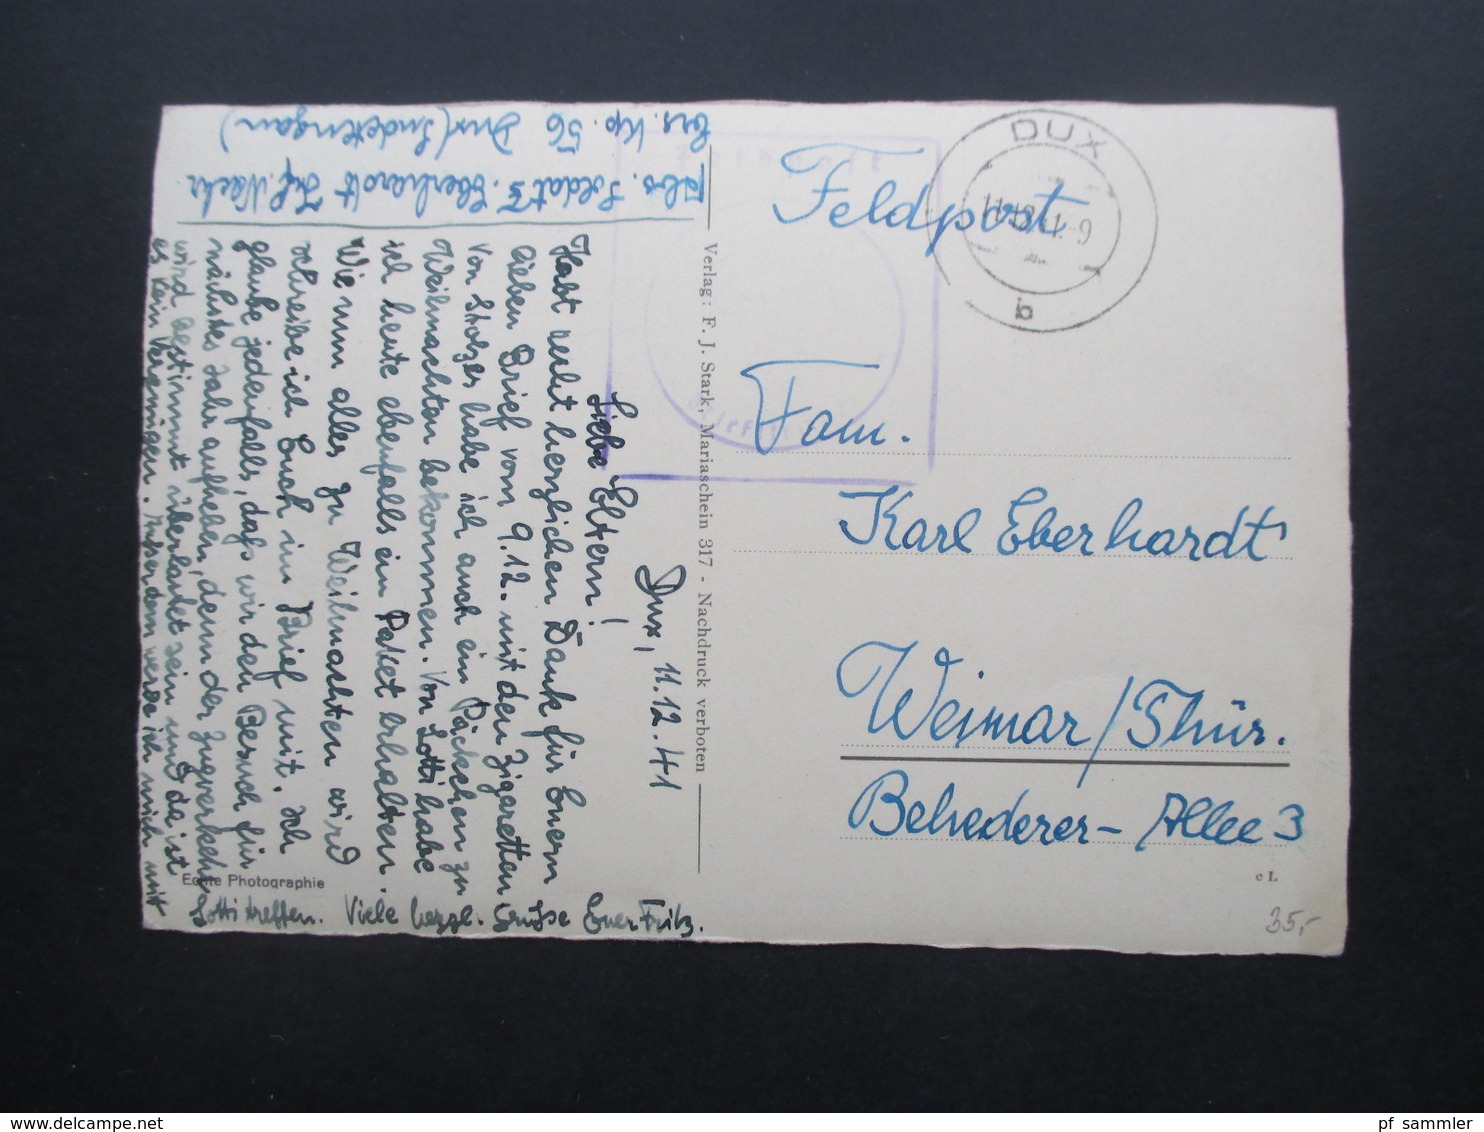 Abs. Soldat F. Eberhardt Inf. Nachr.
Ers. Kp. 56 Dux (Sudetengau)
Dux, 11.12.41
Liebe Eltern!
Habt recht herzlichen Dank für Euern
lieben Brief vom 9.12. mit den Zigaretten
Von Stolzes habe ich auch ein Päckchen zu
Weihnachten bekommen. Von Lotti habe
ich heute ebenfalls ein Paket erhalten.
Wie nun alles zu Weihnachten wird
schreibe ich Euch im Brief mit. Ich
glaube jedenfalls, daß wir den Besuch für
nächstes Jahr aufheben, denn der Zugverkehr
wird bestimmt überlastet sein und da ist
es kein Vergnügen. Außerdem werde ich mich mit
Lotti treffen. Viele herzl. Grüße Euer Fritz.
Echte Photographie
Verlag: F. J. Stark, Mariaschein 317 - Nachdruck verboten
Feldpost
DUX
11.12.41.-9
b
Fam.
Karl Eberhardt
Weimar/Thür.
Belvederer-Allee 3
c L
35,-
www.delcampe.net
pf_sammler